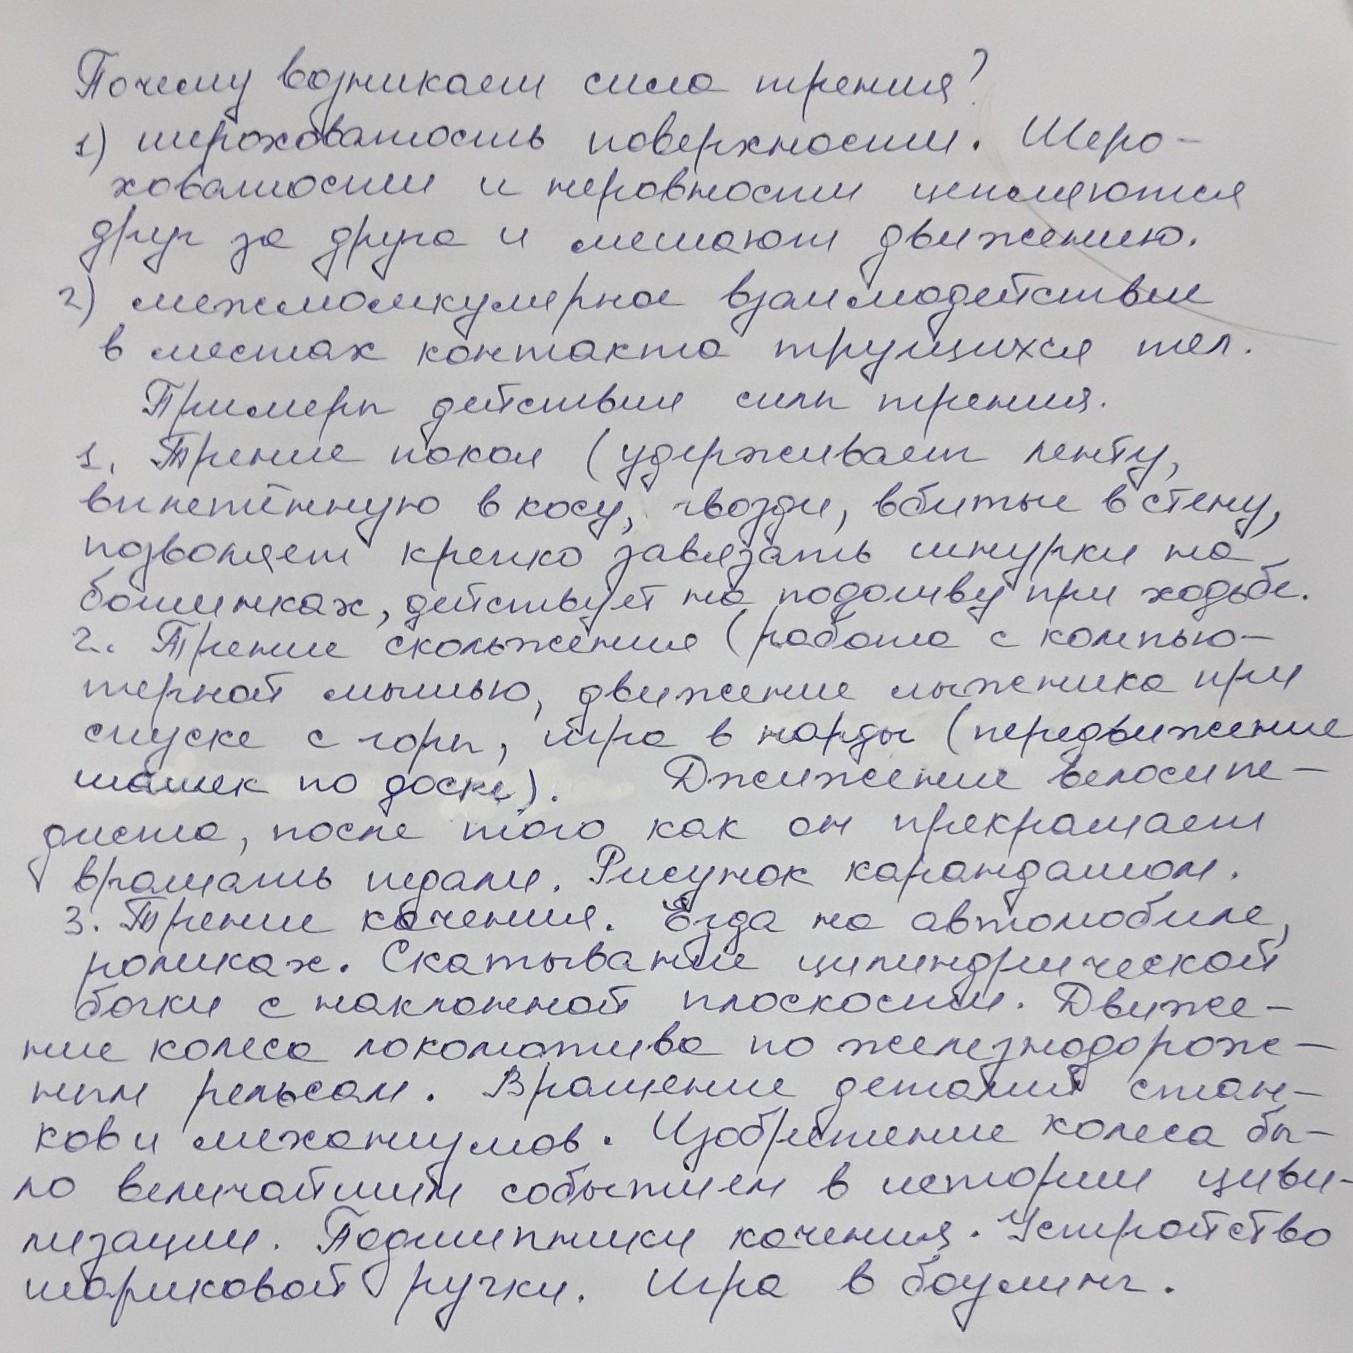 Почему возникает сила трения?
1) шероховатость поверхности. Шеро-
ховатости и неровности цепляются
друг за друга и мешают движению.
2) межмолекулярное взаимодействие
в местах контакта трущихся тел.
Примеры действия силы трения.
1. Трение покоя (удерживает ленту,
вплетённую в косу, гвозди, вбитые в стену,
позволяет крепко завязать шнурки на
ботинках, действует на подошву при ходьбе.
2. Трение скольжения (работа с компью-
терной мышью, движение лыжника при
спуске с горы, игра в нарды (передвижение
шашек по доске). Джижение велосипе-
диста, после того как он прекращает
вращать педали. Рисунок карандашом.
3. Трение качения. Езда на автомобиле,
роликах. Скатывание цилиндрической
бочки с наклонной плоскости. Движе-
ние колеса локомотива по железнодорож-
ным рельсам. Вращение деталей стан-
ков и механизмов. Изобретение колеса бы-
ло величайшим событием в истории циви-
лизации. Подшипники качения. Устройство
шариковой ручки. Игра в боулинг.